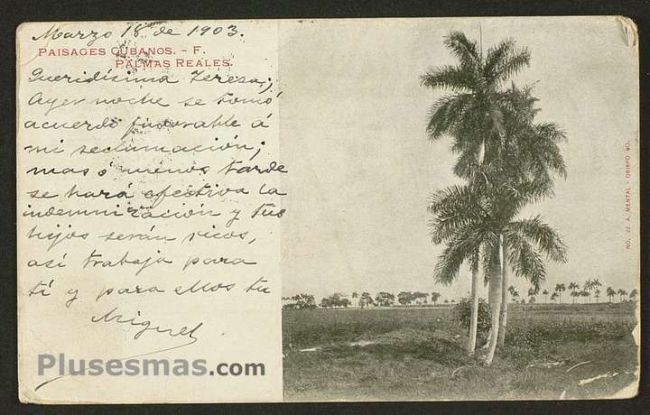 Marzo 18 de 1903.
PAISAGES CUBANOS. - F.
PALMAS REALES.
Queridísima Teresa;
Ayer noche se tomó
acuerdo favorable á
mi reclamación;
mas ó menos tarde
se hará efectiva la
indemnización y tus
hijos serán ricos,
así trabaja para
tí y para ellos tu
Miguel.
Plusesmas.com
NO. 22 A. MENTAL - OBISPO 90.